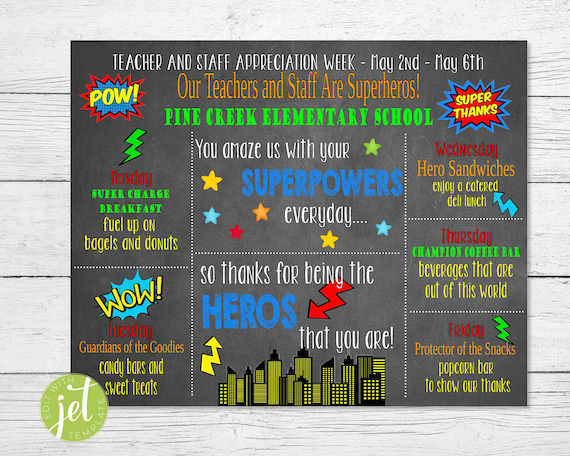 TEACHER AND STAFF APPRECIATION WEEK - May 2nd - May 6th
Our Teachers and Staff Are Superheros!
PINE CREEK ELEMENTARY SCHOOL
POW!
SUPER
THANKS
Monday
SUPER CHARGE
BREAKFAST
fuel up on
bagels and donuts
WOW!
Tuesday
Guardians of the Goodies
candy bars and
sweet treats
You amaze us with your
SUPERPOWERS
everyday....
so thanks for being the
HEROS
that you are!
Wednesday
Hero Sandwiches
enjoy a catered
deli lunch
Thursday
CHAMPION COFFEE BAR
beverages that are
out of this world
Friday
Protector of the Snacks
popcorn bar
to show our thanks
EDIT WITH
jet
TEMPLATE